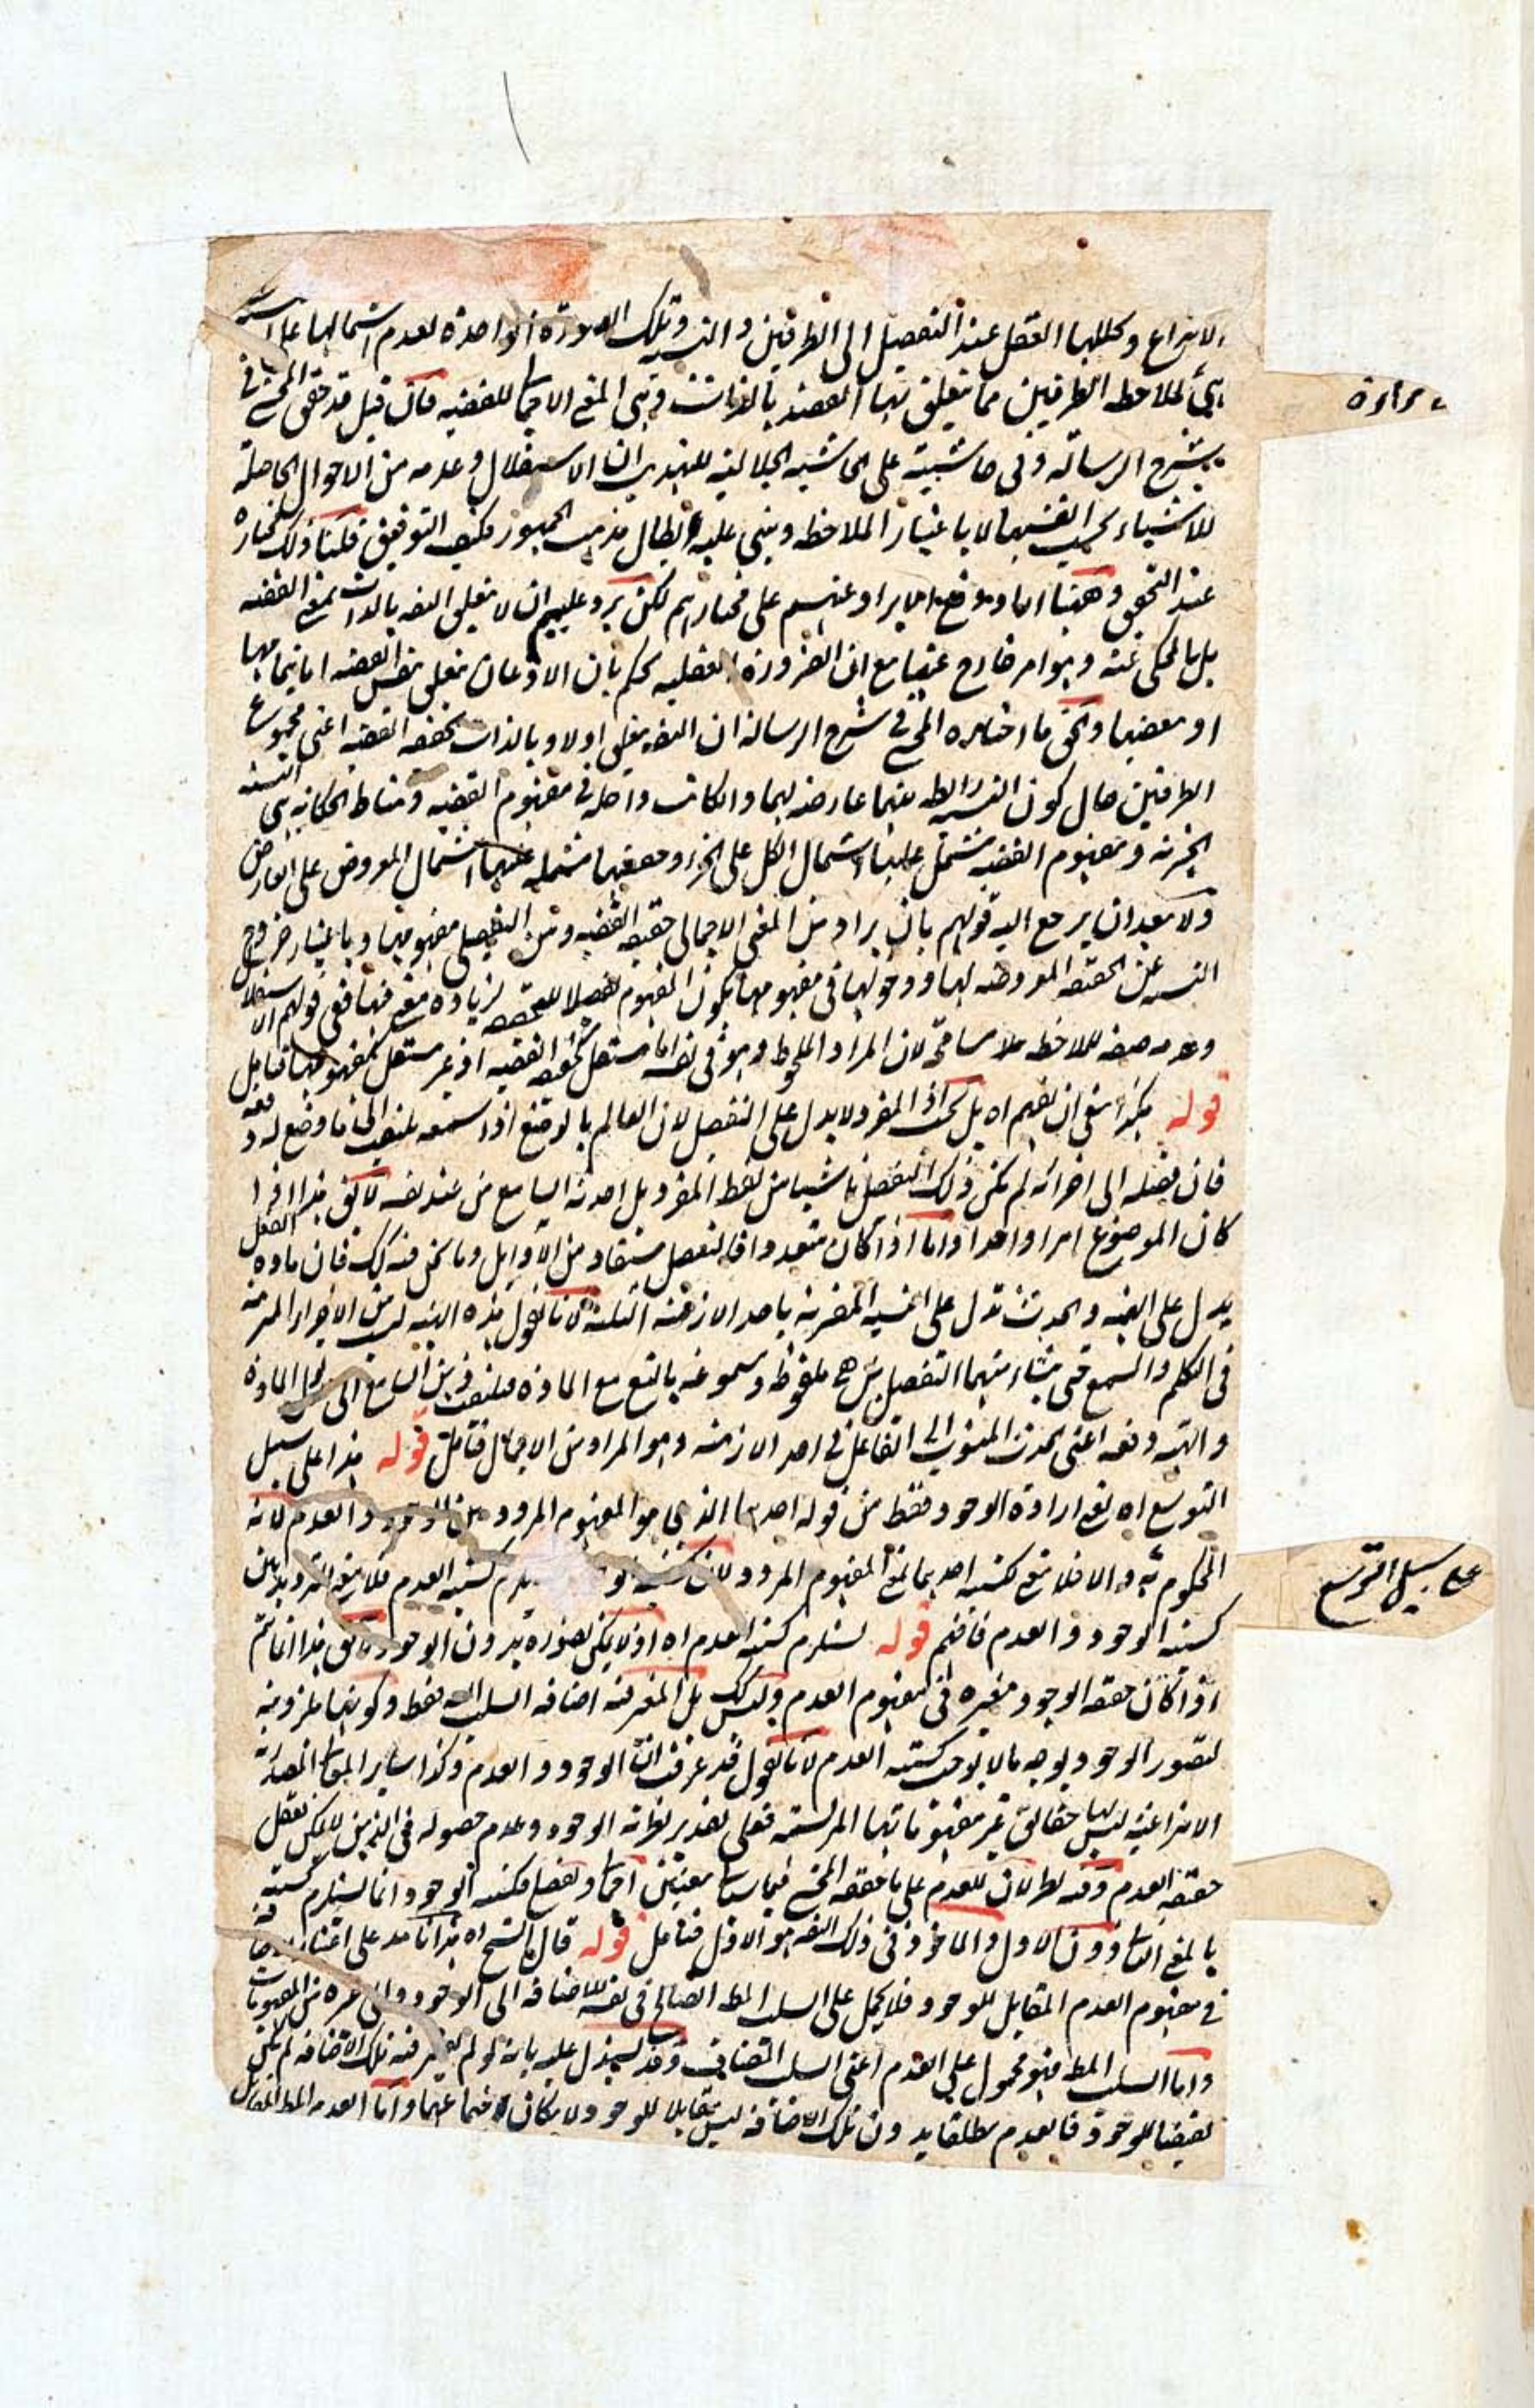 الانتزاع وكللها العقل عند التفصيل الى الطرفين والنسبة وتلك الصورة الواحدة لعدم اشتمالها على النسبة
لملاحظة الطرفين مما يتعلق بها القصد بالذات وهي المعنى الاجمالي للقضية فان قيل قد حقق المحشي في
شرح الرسالة وفي حاشيته على الحاشية الجلالية للتهذيب ان الاستقلال وعدمه من الاحوال الحاصلة
للاشياء بحسب انفسها لا باعتبار الملاحظة وبنى عليه ابطال مذهب الجمهور فكيف التوفيق قلنا ذلك مختاره
عند التحقيق وههنا انما دفع الايراد عنهم على مختارهم لكن يرد عليهم ان لا يتعلق التصديق بالذات بمعنى القضية
بل بالمحكي عنه وهو امر خارج عنها مع ان الضرورة العقلية تحكم بان الاذعان يتعلق بنفس القضية اما بتمامها
او ببعضها والحق ما اختاره المحشي في شرح الرسالة ان التصديق يتعلق اولا وبالذات بحقيقة القضية اعني مجموع
الطرفين حال كون النسبة رابطة بينهما عارضة لهما وان كانت داخلة في مفهوم القضية ومناط الحكاية هي النسبة
الخبرية ومفهوم القضية مشتمل عليها اشتمال الكل على الجزء وحقيقتها مشتملة عليها اشتمال المعروض على العارض
ولا يبعد ان يرجع اليه قولهم بان يراد من المعنى الاجمالي حقيقة القضية ومن التفصيلي مفهومها وباعتبار خروج
النسبة عن الحقيقة المعروضة لها ودخولها في مفهومها يكون المفهوم تفصيلا للحقيقة لزيادة معنى فيها ففي قولهم الاستقلال
وعدمه صفة للملاحظة مسامحة لان المراد الملحوظ وهو في نفسه اما مستقل كحقيقة القضية او غير مستقل كمفهومها فتأمل
قوله هكذا ينبغي ان يفهم اه بل الحق ان المفرد لا يدل على التفصيل لان العالم بالوضع اذا سمعه يلتفت الى ما وضع له دفعة
فان فصله الى اجزائه لم يكن ذلك التفصيل ناشيا من لفظ المفرد بل احدثه السامع من عند نفسه لا يقال هذا اذا
كان الموضوع امرا واحدا واما اذا كان متعددا فالتفصيل مستفاد من الاوائل وما نحن فيه كذلك فان مادة الفعل
يدل على الحدث والهيئة تدل على النسبة المقترنة باحد الازمنة الثلثة لانا نقول هذه الهيئة ليس من الاجزاء المترتبة
في التكلم والسمع حتى ينشاء منهما التفصيل بل هي ملفوظة ومسموعة بالتبع مع المادة فيلتفت ذهن السامع الى مدلول المادة
والهيئة دفعة اعني الحدث المنسوب الى الفاعل في احد الازمنة وهو المراد من الاجمال فتأمل قوله هذا على سبيل
التوسع اه يعني ارادة الوجود فقط من قوله احدهما الذي هو المفهوم المردد بين الوجود والعدم لانه
المحكوم به والا فلا معنى لكنه احدهما بمعنى المفهوم المردد لان كنه الوجود يستلزم كنه العدم فلا معنى للترديد بين
كنه الوجود والعدم فافهم قوله يستلزم كنه العدم اه اذ لا يمكن تصوره بدون الوجود لا يقال هذا انما يتم
اذا كان حقيقة الوجود معتبرة في مفهوم العدم وليس كذلك بل المعتبر فيه اضافة السلب اليه فقط وكونها ملزومة
لتصور الوجود بوجه ما لا يوجب كنه العدم لانا نقول قد عرفت ان الوجود والعدم وكذا سائر المعاني المصدرية
الانتزاعية ليس لها حقائق غير مفهوماتها المرتسمة فعلى تقدير نظرية الوجود وعدم حصوله في الذهن لا يمكن تعقل
حقيقة العدم وفيه نظر لان للعدم على ما حققه المحشي فيما سيأتي معنيين اجمالي وتفصيلي فكنه الوجود انما يستلزم كنهه
بالمعنى الثاني دون الاول والماخوذ في ذلك التصديق هو الاول فتأمل قوله قال الشيخ اه هذا انما يدل على اعتبار الاضافة
في مفهوم العدم المقابل للوجود فلا يحمل على السلب المطلق الصالح في نفسه للاضافة الى الوجود والى غيره من المفهومات
واما السلب المطلق فهو محمول على العدم اعني السلب المضاف وقد يستدل عليه بانه لو لم يعتبر فيه تلك الاضافة لم يكن
نقيضا للوجود فالعدم مطلقا بدون تلك الاضافة ليس مقابلا للوجود ولا يكاد يجتمعا عنهما واما العدم المطلق المقابل
على سبيل التوسع